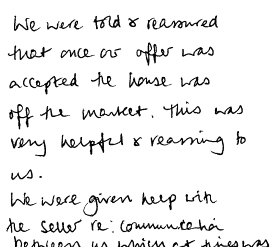 We were told & reassured
that once our offer was
accepted the house was
off the market. This was
very helpful & reassuring to
us.
We were given help with
the seller re: communication
between us which at times was